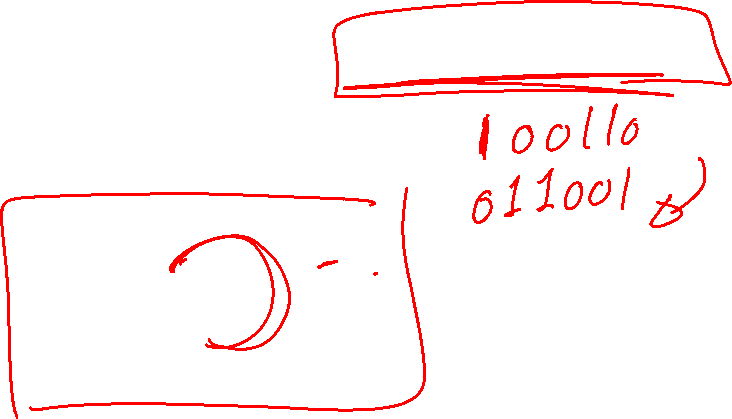 100110
011001